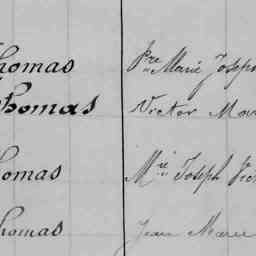 Thomas Pre Marie Joseph
Thomas Victor Mar
Thomas Mie Joseph
Thomas Jean Marie